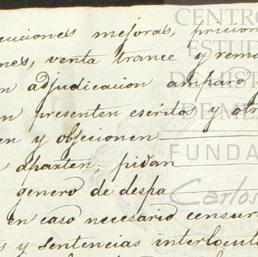 ecuciones mejoras, pricion
nes, venta trance y rema
n adjudicacion amparo
n presenten escritos y otr
en y objecionen
aparten, pidan
genero de despa
en caso necesario censur
s y sentencias interlocut
CENTRO
ESTUD
DE MI
DEM
FUNDA
Carlos